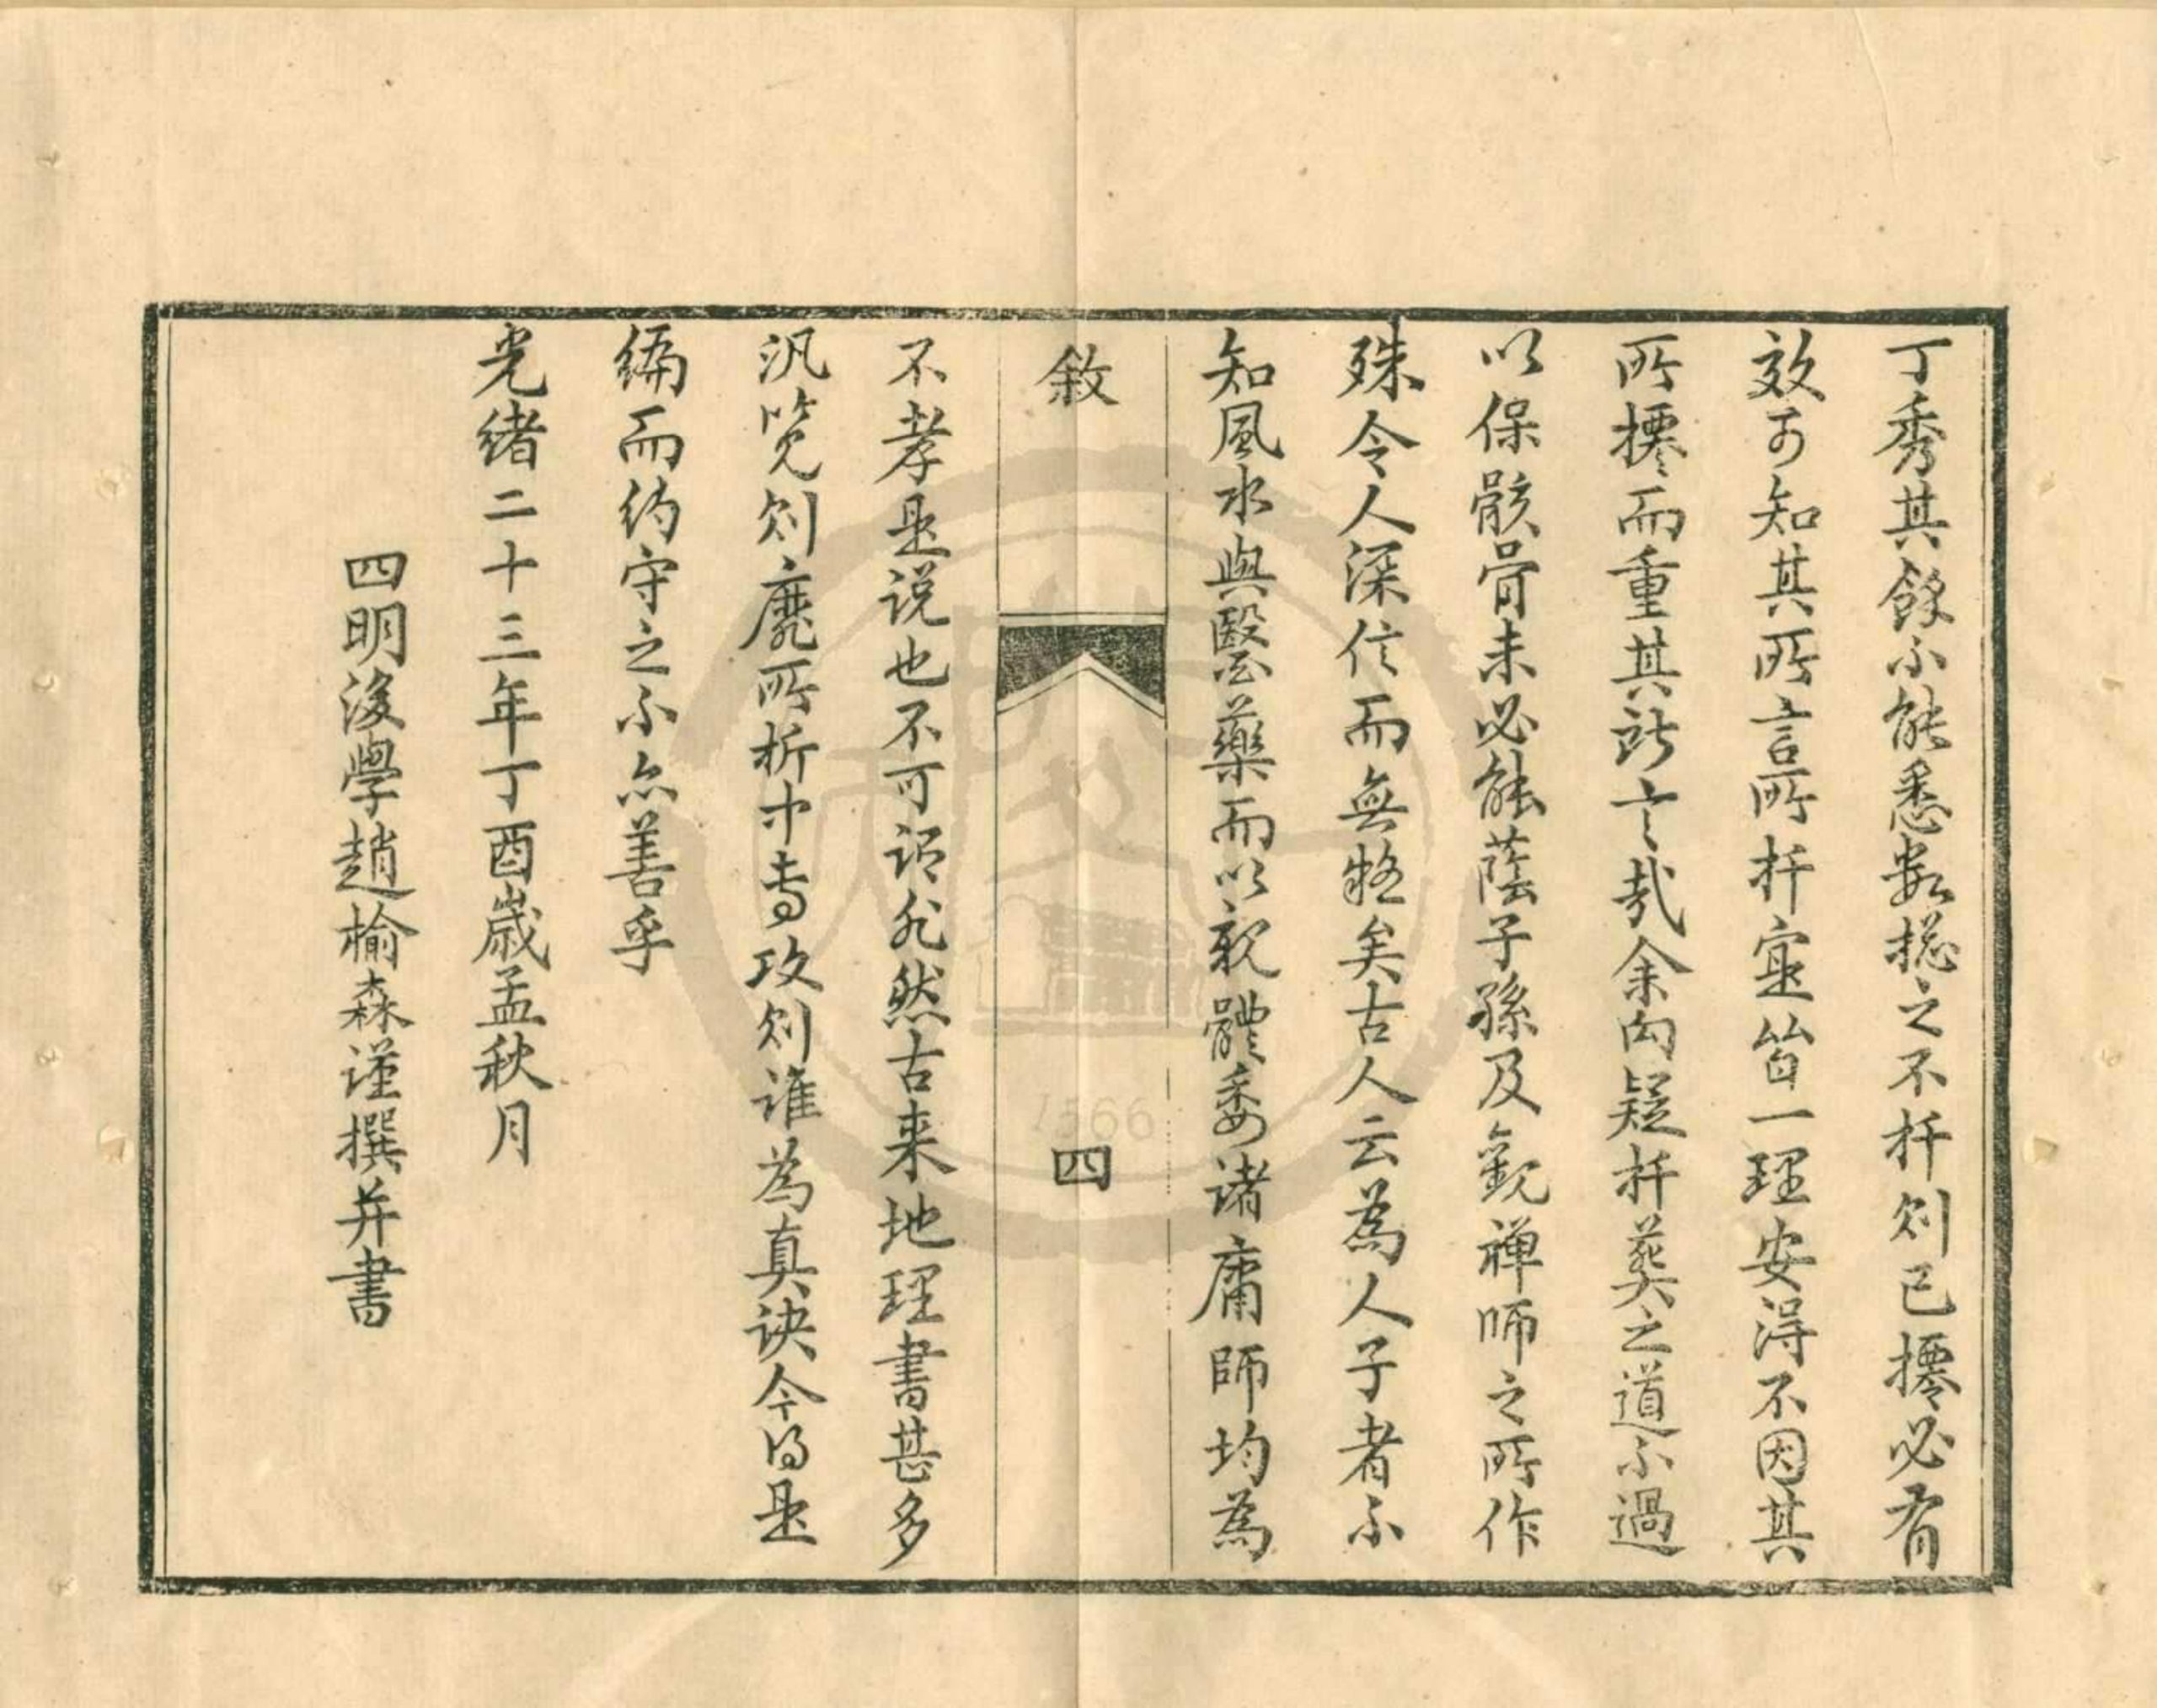 丁秀其餘不能悉數摠之不扦則已㩠必有
效可知其所言所扦寔皆一理安得不因其
所㩠而重其所言哉余向疑扦葬之道不過
以保骸骨未必能蔭子孫及觀禪師之所作
殊令人深信而無疑矣古人云為人子者不
知風水與醫藥而以親體委諸庸師均為
敘
四
不孝是說也不可謂非然古来地理書甚多
汎覽則靡所折中專攻則誰為真訣今得是
編而約守之不亦善乎
光緒二十三年丁酉歲孟秋月
四明後學趙榆森謹撰并書
1566